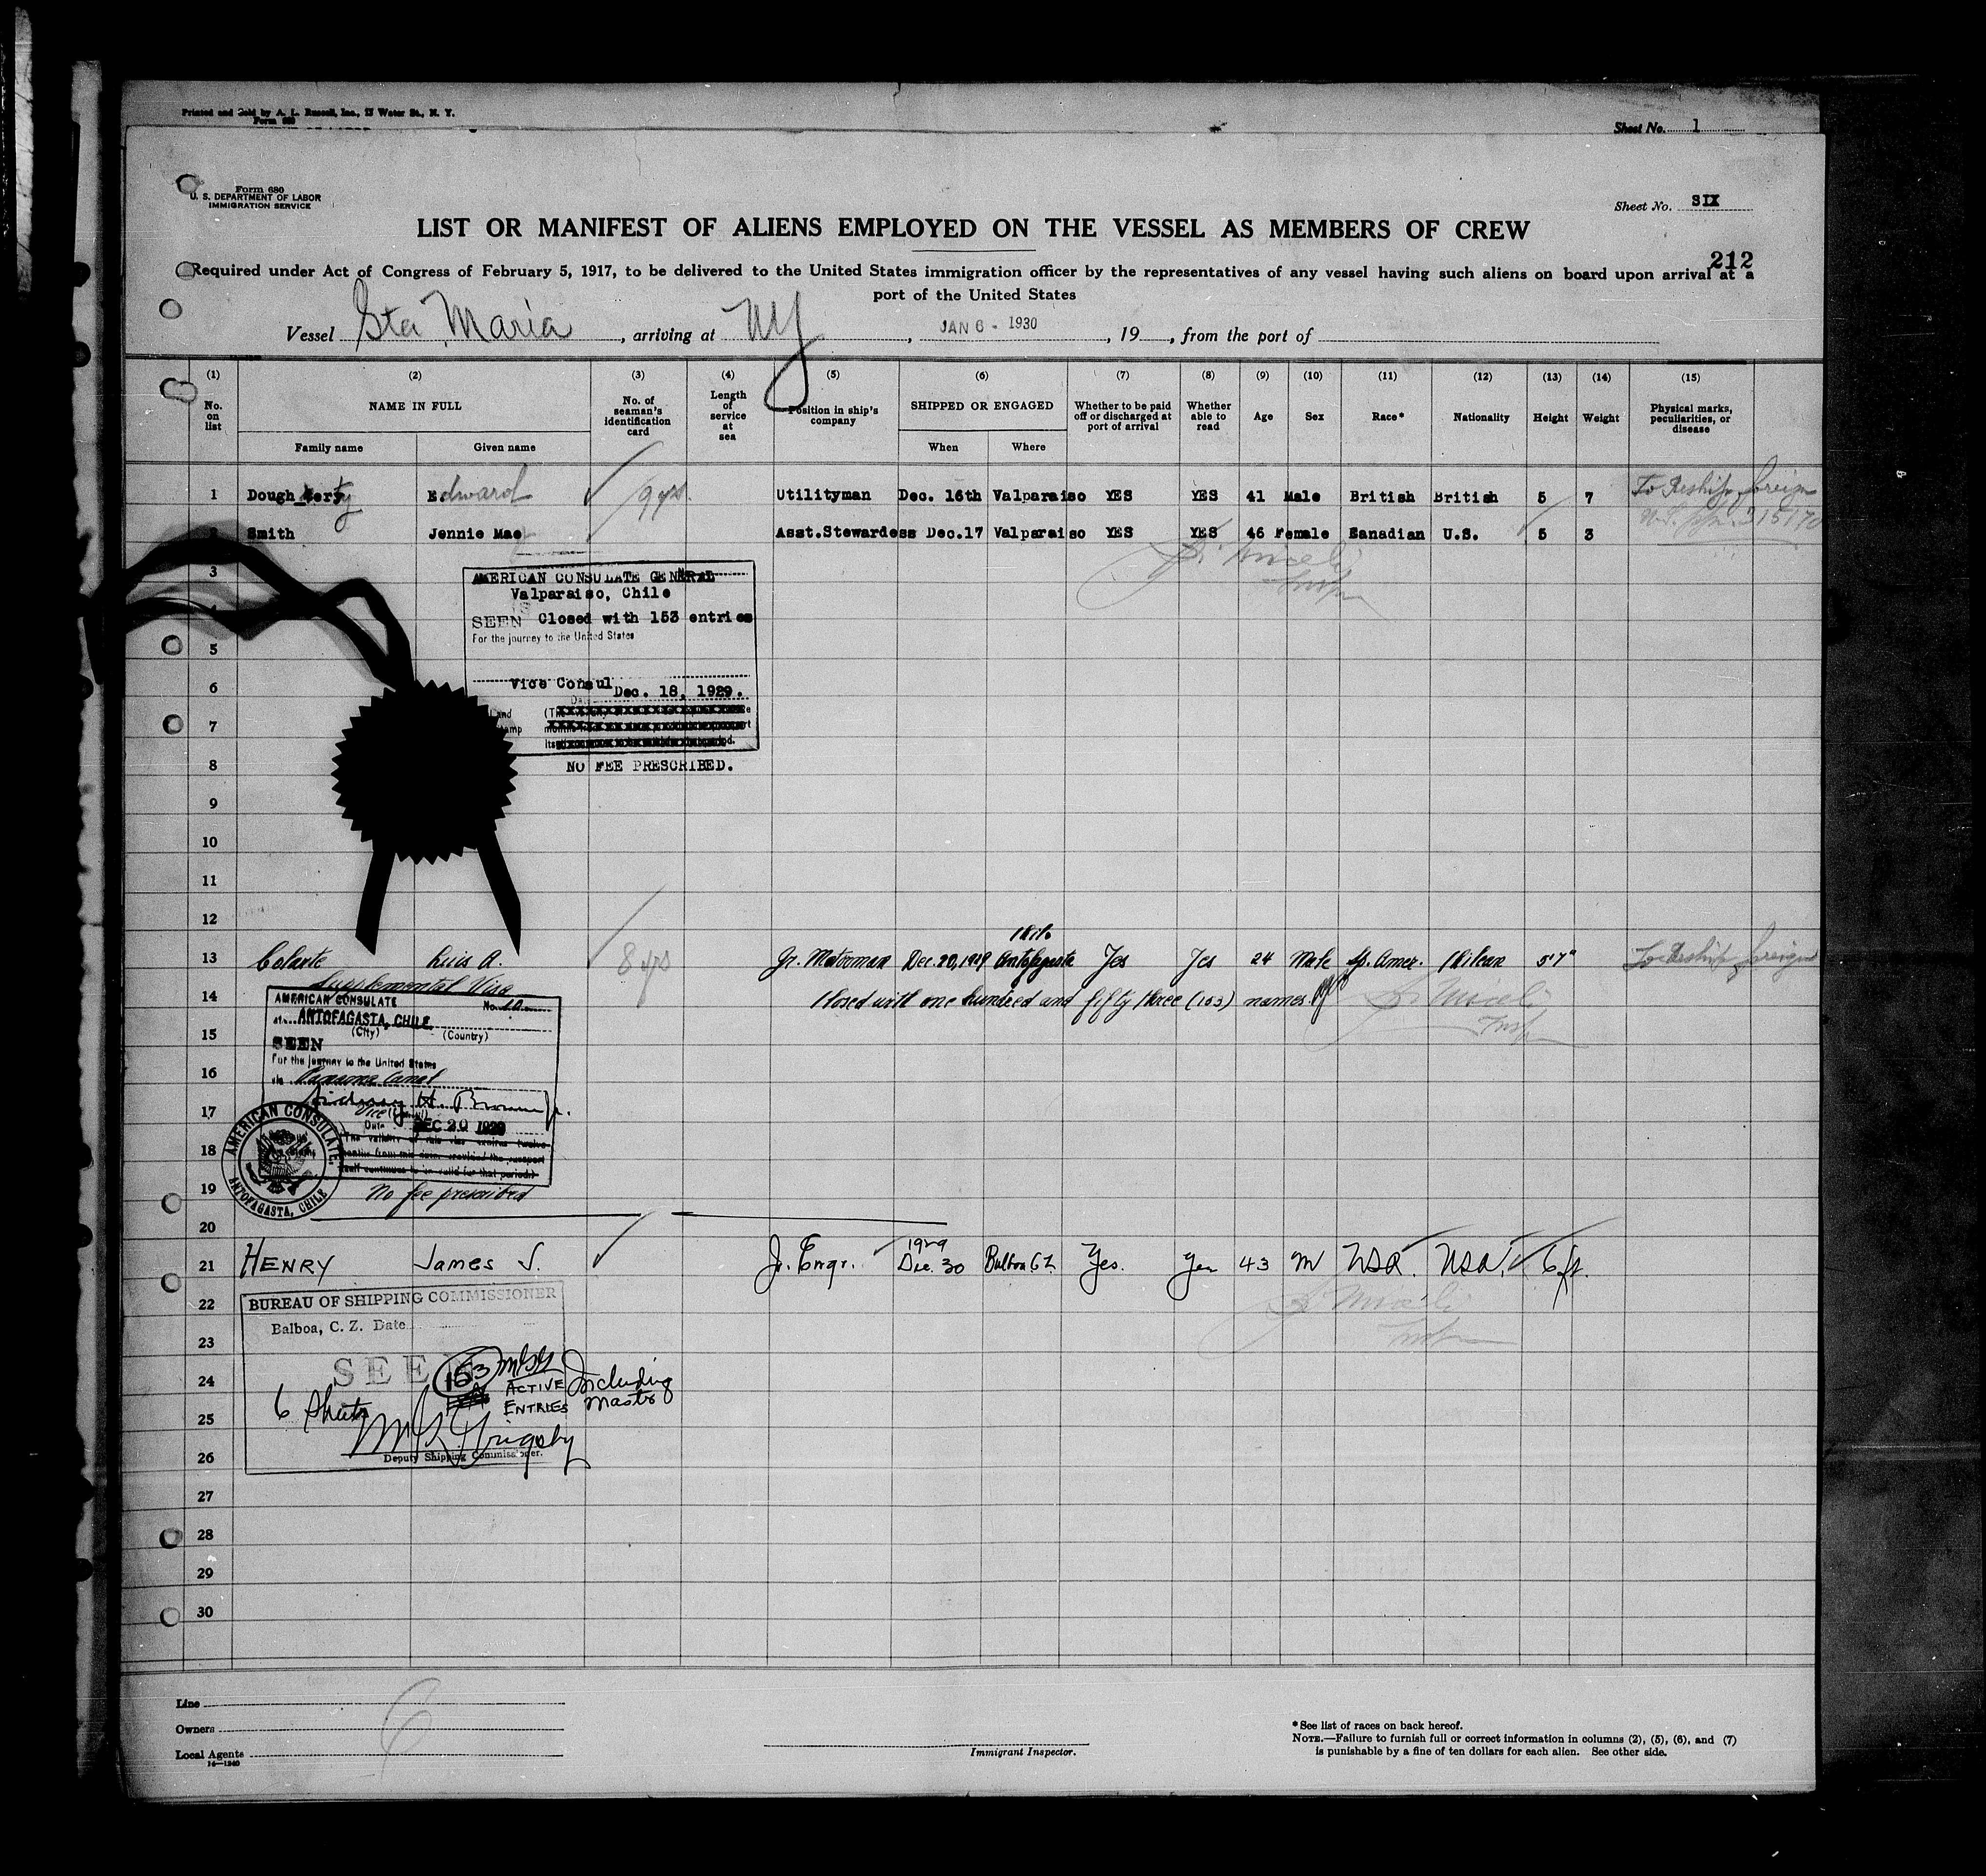 Printed and Sold by A. L. Russell, Inc., 17 Water St., N. Y.
Form 680
Sheet No. 1
Form 680
U. S. DEPARTMENT OF LABOR
IMMIGRATION SERVICE
Sheet No. SIX
LIST OR MANIFEST OF ALIENS EMPLOYED ON THE VESSEL AS MEMBERS OF CREW
212
Required under Act of Congress of February 5, 1917, to be delivered to the United States immigration officer by the representatives of any vessel having such aliens on board upon arrival at a
port of the United States
Vessel Sta Maria, arriving at NY, JAN 6 - 1930, 19, from the port of
(1) (2) (3) (4) (5) (6) (7) (8) (9) (10) (11) (12) (13) (14) (15)
No. on list
NAME IN FULL
Family name
Given name
No. of seaman's identification card
Length of service at sea
Position in ship's company
SHIPPED OR ENGAGED
When
Where
Whether to be paid off or discharged at port of arrival
Whether able to read
Age
Sex
Race*
Nationality
Height
Weight
Physical marks, peculiarities, or disease
1 Dougherty Edward 9 yrs. Utilityman Dec. 16th Valparaiso YES YES 41 Male British British 5 7 To Reship foreign
2 Smith Jennie Mae Asst.Stewardess Dec.17 Valparaiso YES YES 46 Female Canadian U.S. 5 3
3
4
5
6
7
8
9
10
11
12
AMERICAN CONSULATE GENERAL
Valparaiso, Chile
SEEN Closed with 153 entries
For the journey to the United States
Vice Consul Dec. 18, 1929.
NO FEE PRESCRIBED.
13 Celarte Luis A. 8 yrs Jr. Motorman Dec. 20, 1929 Antofagasta Chile Yes Yes 24 Male Sp. Amer. Chilean 5'7" To Reship foreign
Supplemental Visa
14 Closed with one hundred and fifty three (153) names.
15
16
17
18
19
20
AMERICAN CONSULATE
No.
at ANTOFAGASTA, CHILE
(City) (Country)
SEEN
For the journey to the United States
via Panama Canal
Sidney H. Brown Jr.
Vice Consul
Date DEC 20 1929
The validity of this visa expires twelve
months from this date provided the passport
itself continues to be valid for that period.
AMERICAN CONSULATE, ANTOFAGASTA, CHILE
No fee prescribed
21 HENRY James J. Jr. Engr. 1929 Dec. 30 Balboa CZ Yes. Yes 43 M USA. USA. 6 ft.
22
23
24
25
26
27
28
29
30
BUREAU OF SHIPPING COMMISSIONER
Balboa, C. Z. Date
SEEN
153
ACTIVE ENTRIES Including Master
6 Sheets
Deputy Shipping Commissioner.
6
Line
Owners
Local Agents
14—1240
Immigrant Inspector.
*See list of races on back hereof.
NOTE.—Failure to furnish full or correct information in columns (2), (5), (6), and (7)
is punishable by a fine of ten dollars for each alien. See other side.